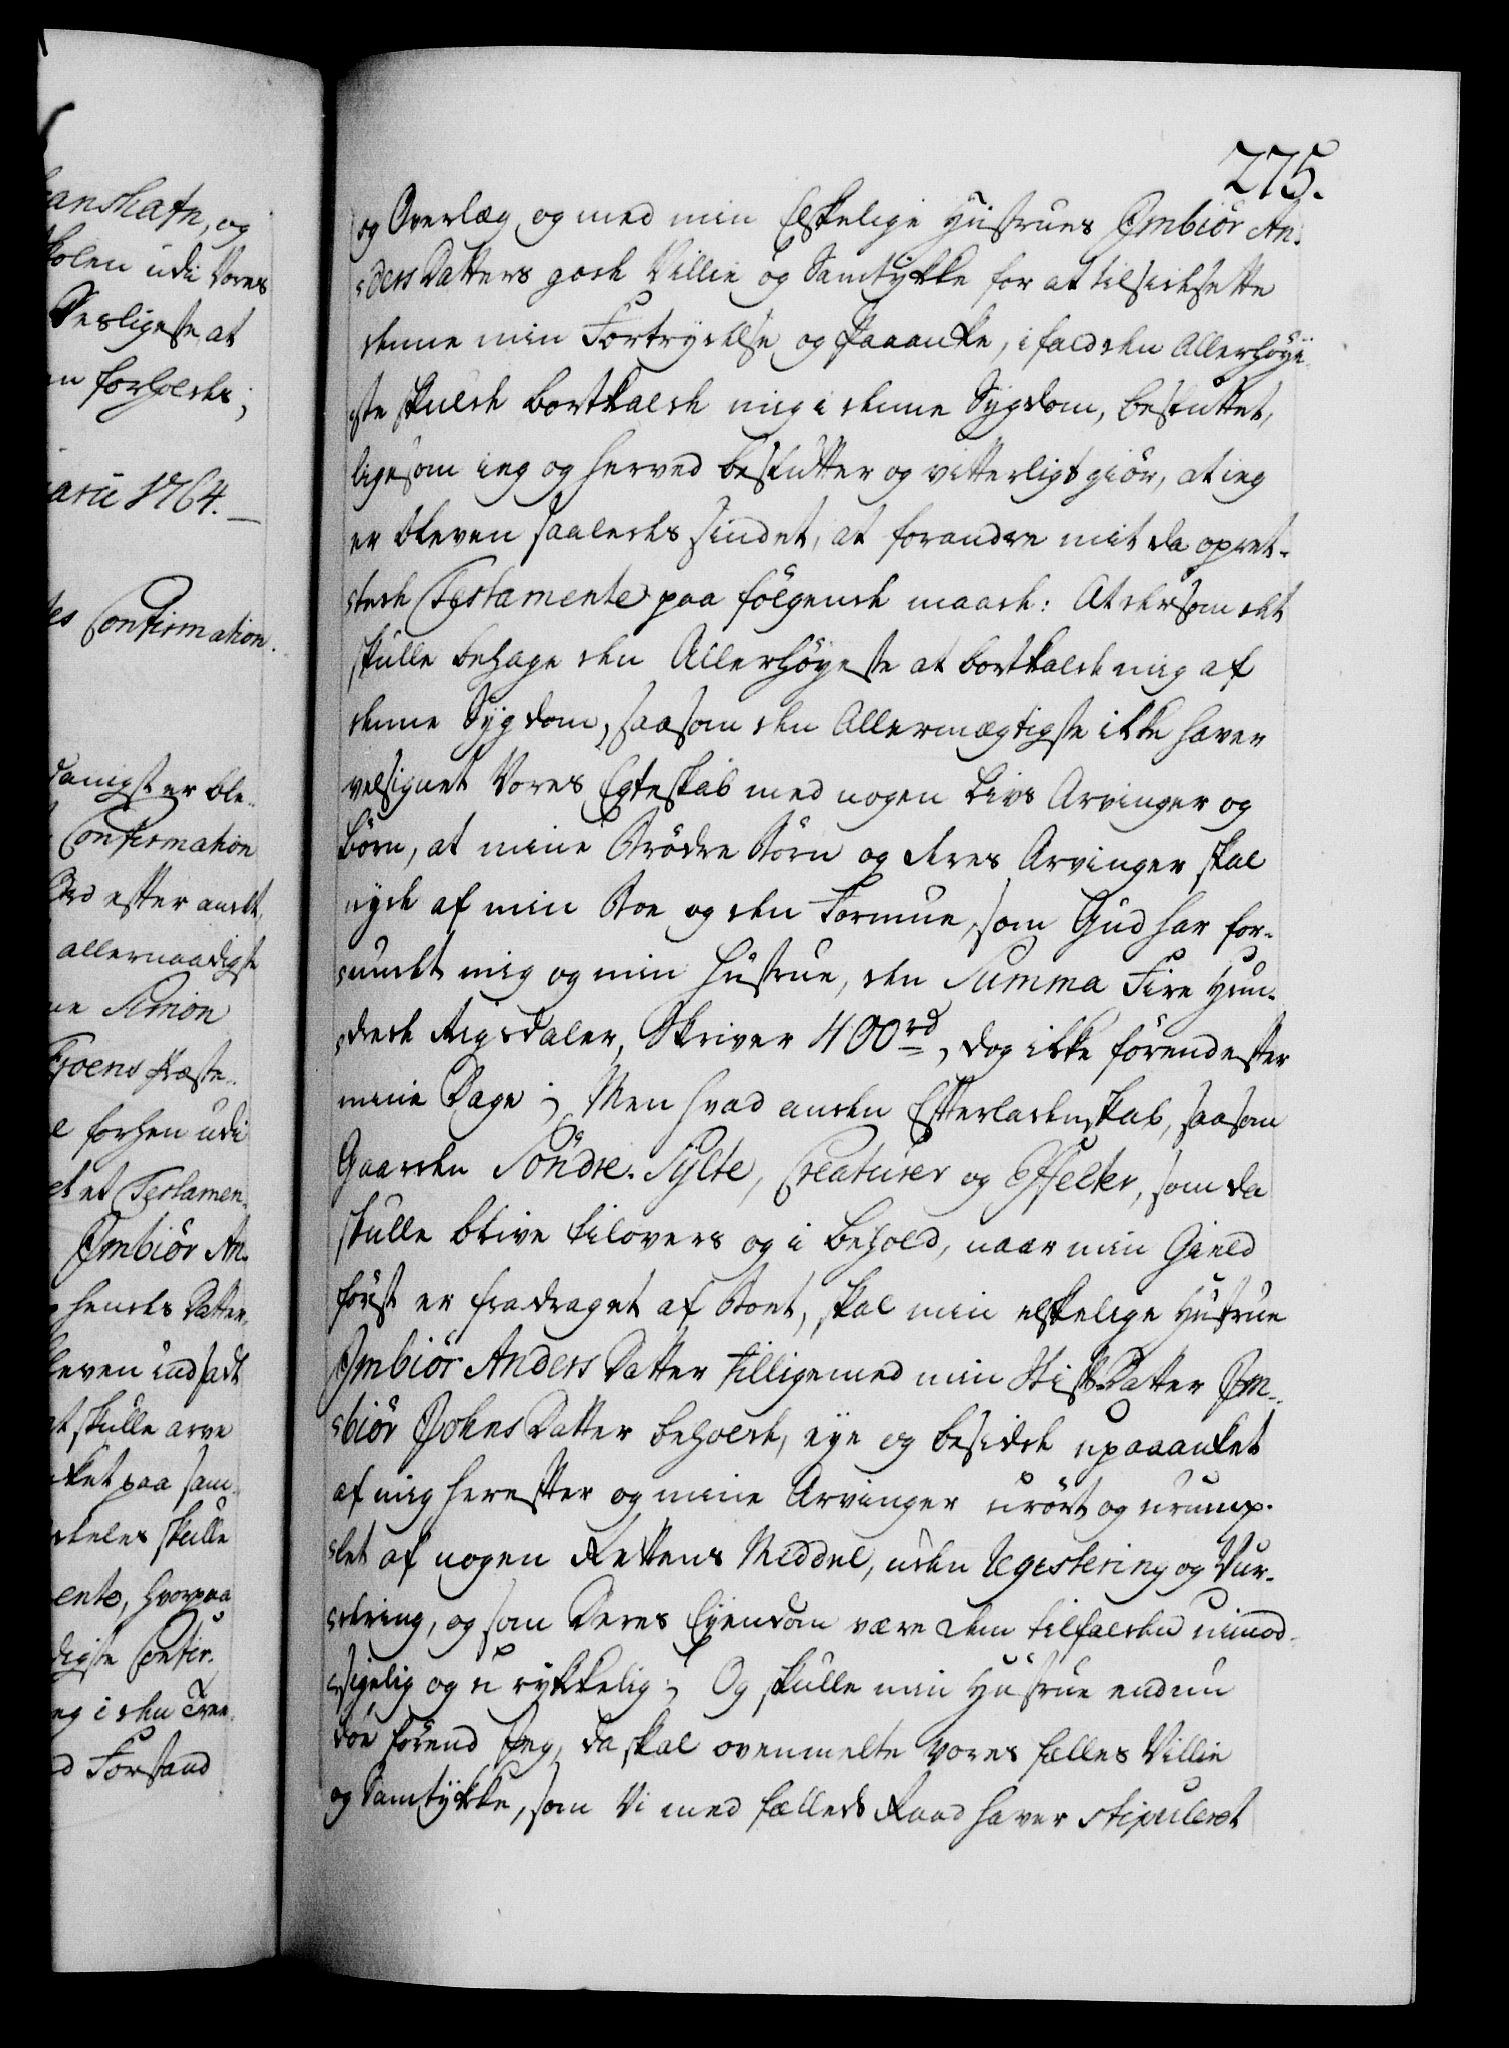 anshafn, og
skolen udi Vores
Desligeste at
forholde;
arii 1764.
Confirmation.
danigst er ble-
Confirmation
efter andet
allernaadigste
Simon
Troens Præste-
forhen udi
et Testamen-
Ømbiör An-
hendes Datter
leven indsadt
skulle arve
ket paa sam-
skulle
ente, hvorpaa
digste Confir-
i den Tree
Forstand
275.
og Overlæg og med min Elskelige Hustrues Ømbiör An-
ders Datters gode Villie og Samtykke for at tilsidesette
denne min Fortrydelse og Paaanke, ifald den Allerhöye-
ste skulde bortkalde mig i denne Sygdom, besluttet,
ligesom ieg og herved beslutter og vitterligt giör, at ieg
er bleven saaledes sindet, at forandre mit da opret-
tede Testamente paa fölgende maade: At dersom det
skulle behage den Allerhöyeste at bortkalde mig af
denne Sygdom, saasom den Allermægtigste ikke haver
velsignet Vores Egteskab med nogen Livs Arvinger og
Börn, at mine Brödre Börn og deres Arvinger skal
nyde af min Boe og den Formue, som Gud har for-
undt mig og min Hustrue, den Summa Fire Hun-
drede Rigsdaler, Skriver 400 rd, dog ikke förend efter
mine Dage; Men hvad anden Efterladenskab, saasom
Gaarden Söndre-Sylte, Creaturer og Effekter, som da
skulle blive tilovers og i behold, naar min Gield
först er fradraget af Boet, skal min elskelige Hustrue
Ømbiör Anders Datter tilligemed min Stif-Datter Øm-
biör Johns Datter beholde, eye og besidde upaaanket
af mig herefter og mine Arvinger urört og urump-
let af nogen Rettens Middel, uden Registering og Vur-
dering, og som Deres Eyendom være dem tilfalden uimod-
sigelig og urykkelig; Og skulle min Hustrue endnu
döe förend Jeg, da skal ovenmelte Vores fælles Villie
og Samtykke, som Vi med fælleds Raad haver stipuleret